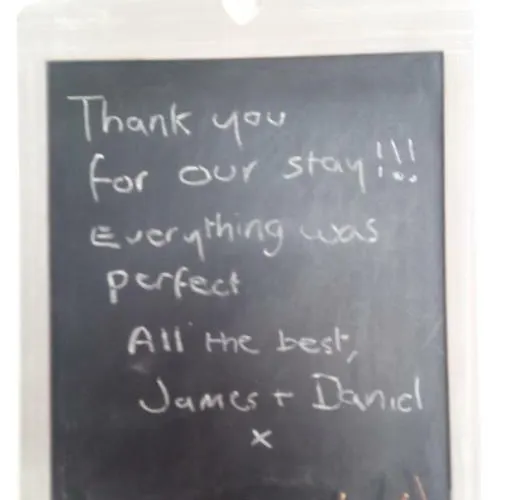 Thank you
for our stay!!!
Everything was
perfect
All the best,
James + Daniel
x